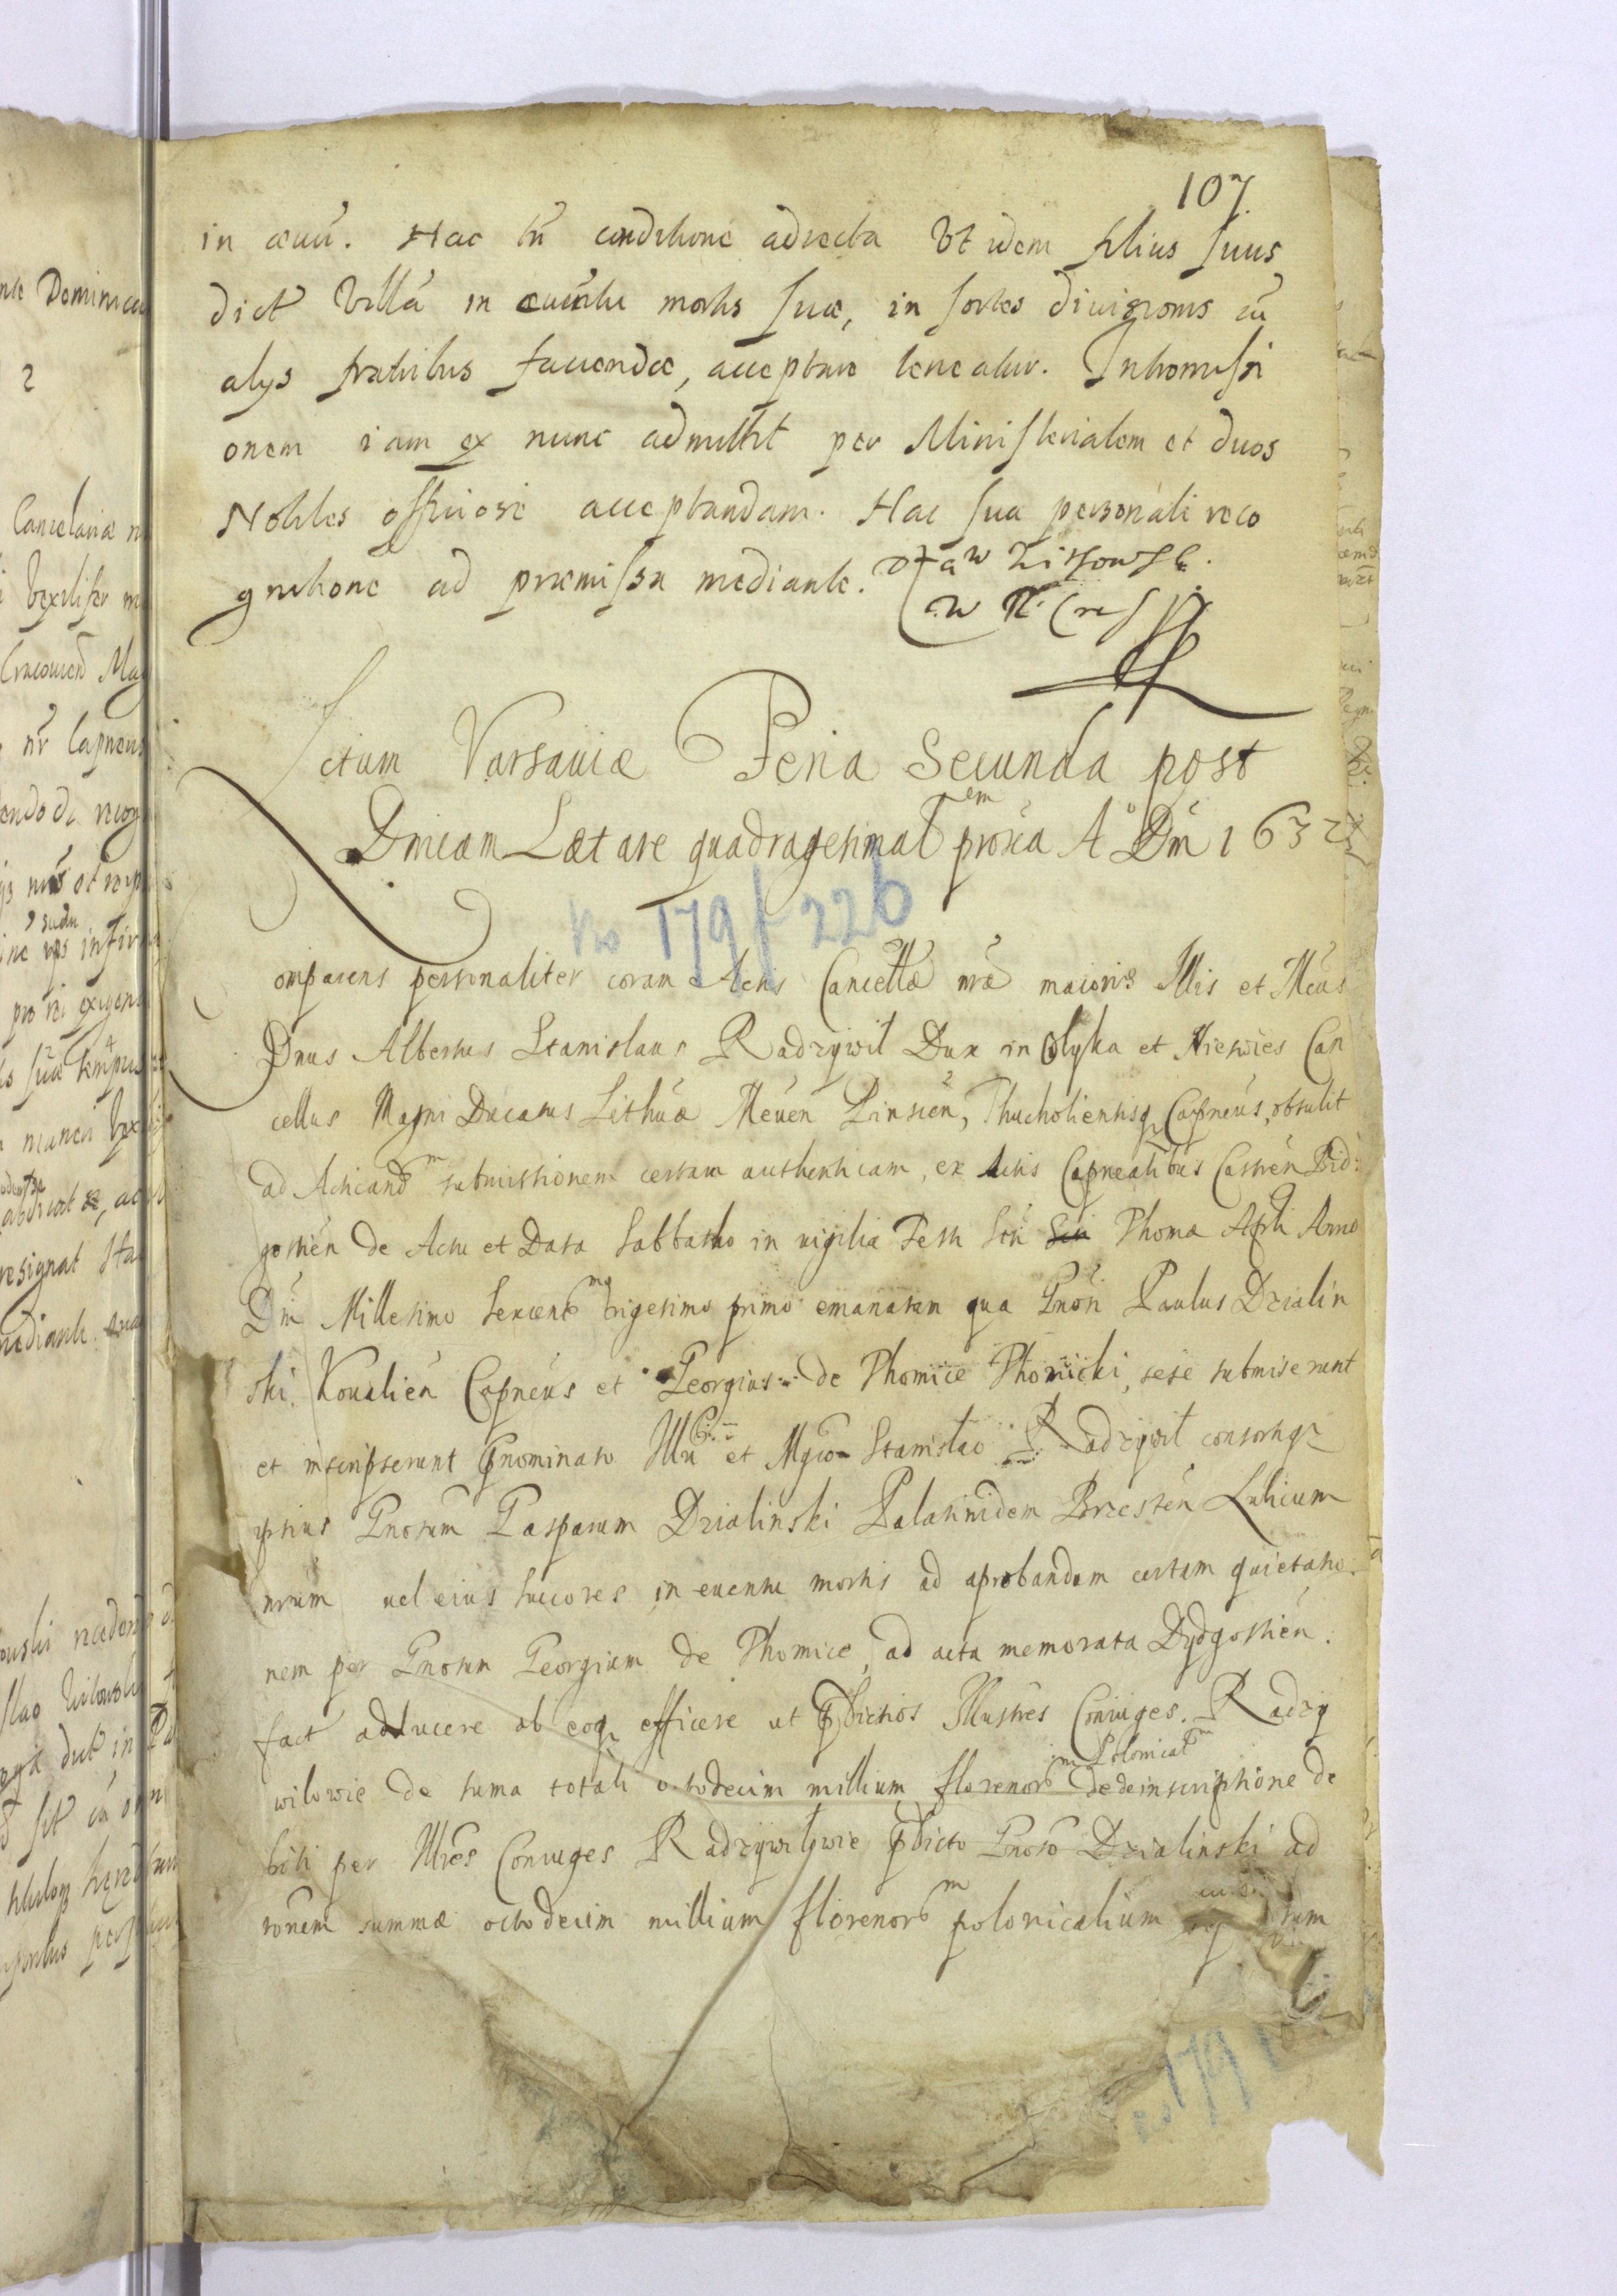 107.
in æuũ. Hac tñ conditione adiecta Vt idem filius suus
dict Villã in euẽntu mortis suæ, in sortes diuisionis cũ
alys fratribus faciendæ, acceptare teneatur. Intromissi
onem iam ex nunc admittit per Ministerialem et duos
Nobiles officiose acceptandam. Hac sua personali reco
gnitione ad præmissa mediante.
Actum Varsauiæ Feria Secunda post
Dnicam Lætare quadragesimalem proxã Ao Dni 1632
No 179 f 226
Comparens personaliter coram Actis Cancellæ nræ maioris Illris et Mcus
Dnus Albertus Stanislaus Radziwil Dux in Olyka et Nieswies Can
cellus Magni Ducatus Lithuæ Meuen Pinscen, Thucholiensisq Capneus, obtulit
ad Acticandm submissionem certam authenticam, ex Actis Capnealibus Castren Bid:
gostien de Actu et Data Sabbatho in vigilia Festi Sti Thomæ Apli Anno
Dni Millesimo Sexcentmo trigesimo primo emanatam qua Gnosi Paulus Dzialin
ski Koualien Capneus et Georgius de Thomice Thomicki, sese submiserunt
et inscripserunt pnominato Illri et Mgco Stanislao Radziwil consortiq
ipsius Gnosum Gasparum Dzialinski Palatinidem Brzesten Iulicum
nrum uel eius succores in euentu mortis ad aprobandam certam quietatio.
nem per Gnosum Georgium de Thomice, ad acta memorata Bydgostien.
fact adducere ab eoq efficere ut pdictos Illustres Coniuges. Radzy
wilowie de suma totali octodecim millium florenorm Polonicalm de inscriptione de
biti per Illres Coniuges Radzywilowie pdicto Gnoso Dzialinski ad
ronem summæ octodecim millium florenorm polonicalium
179